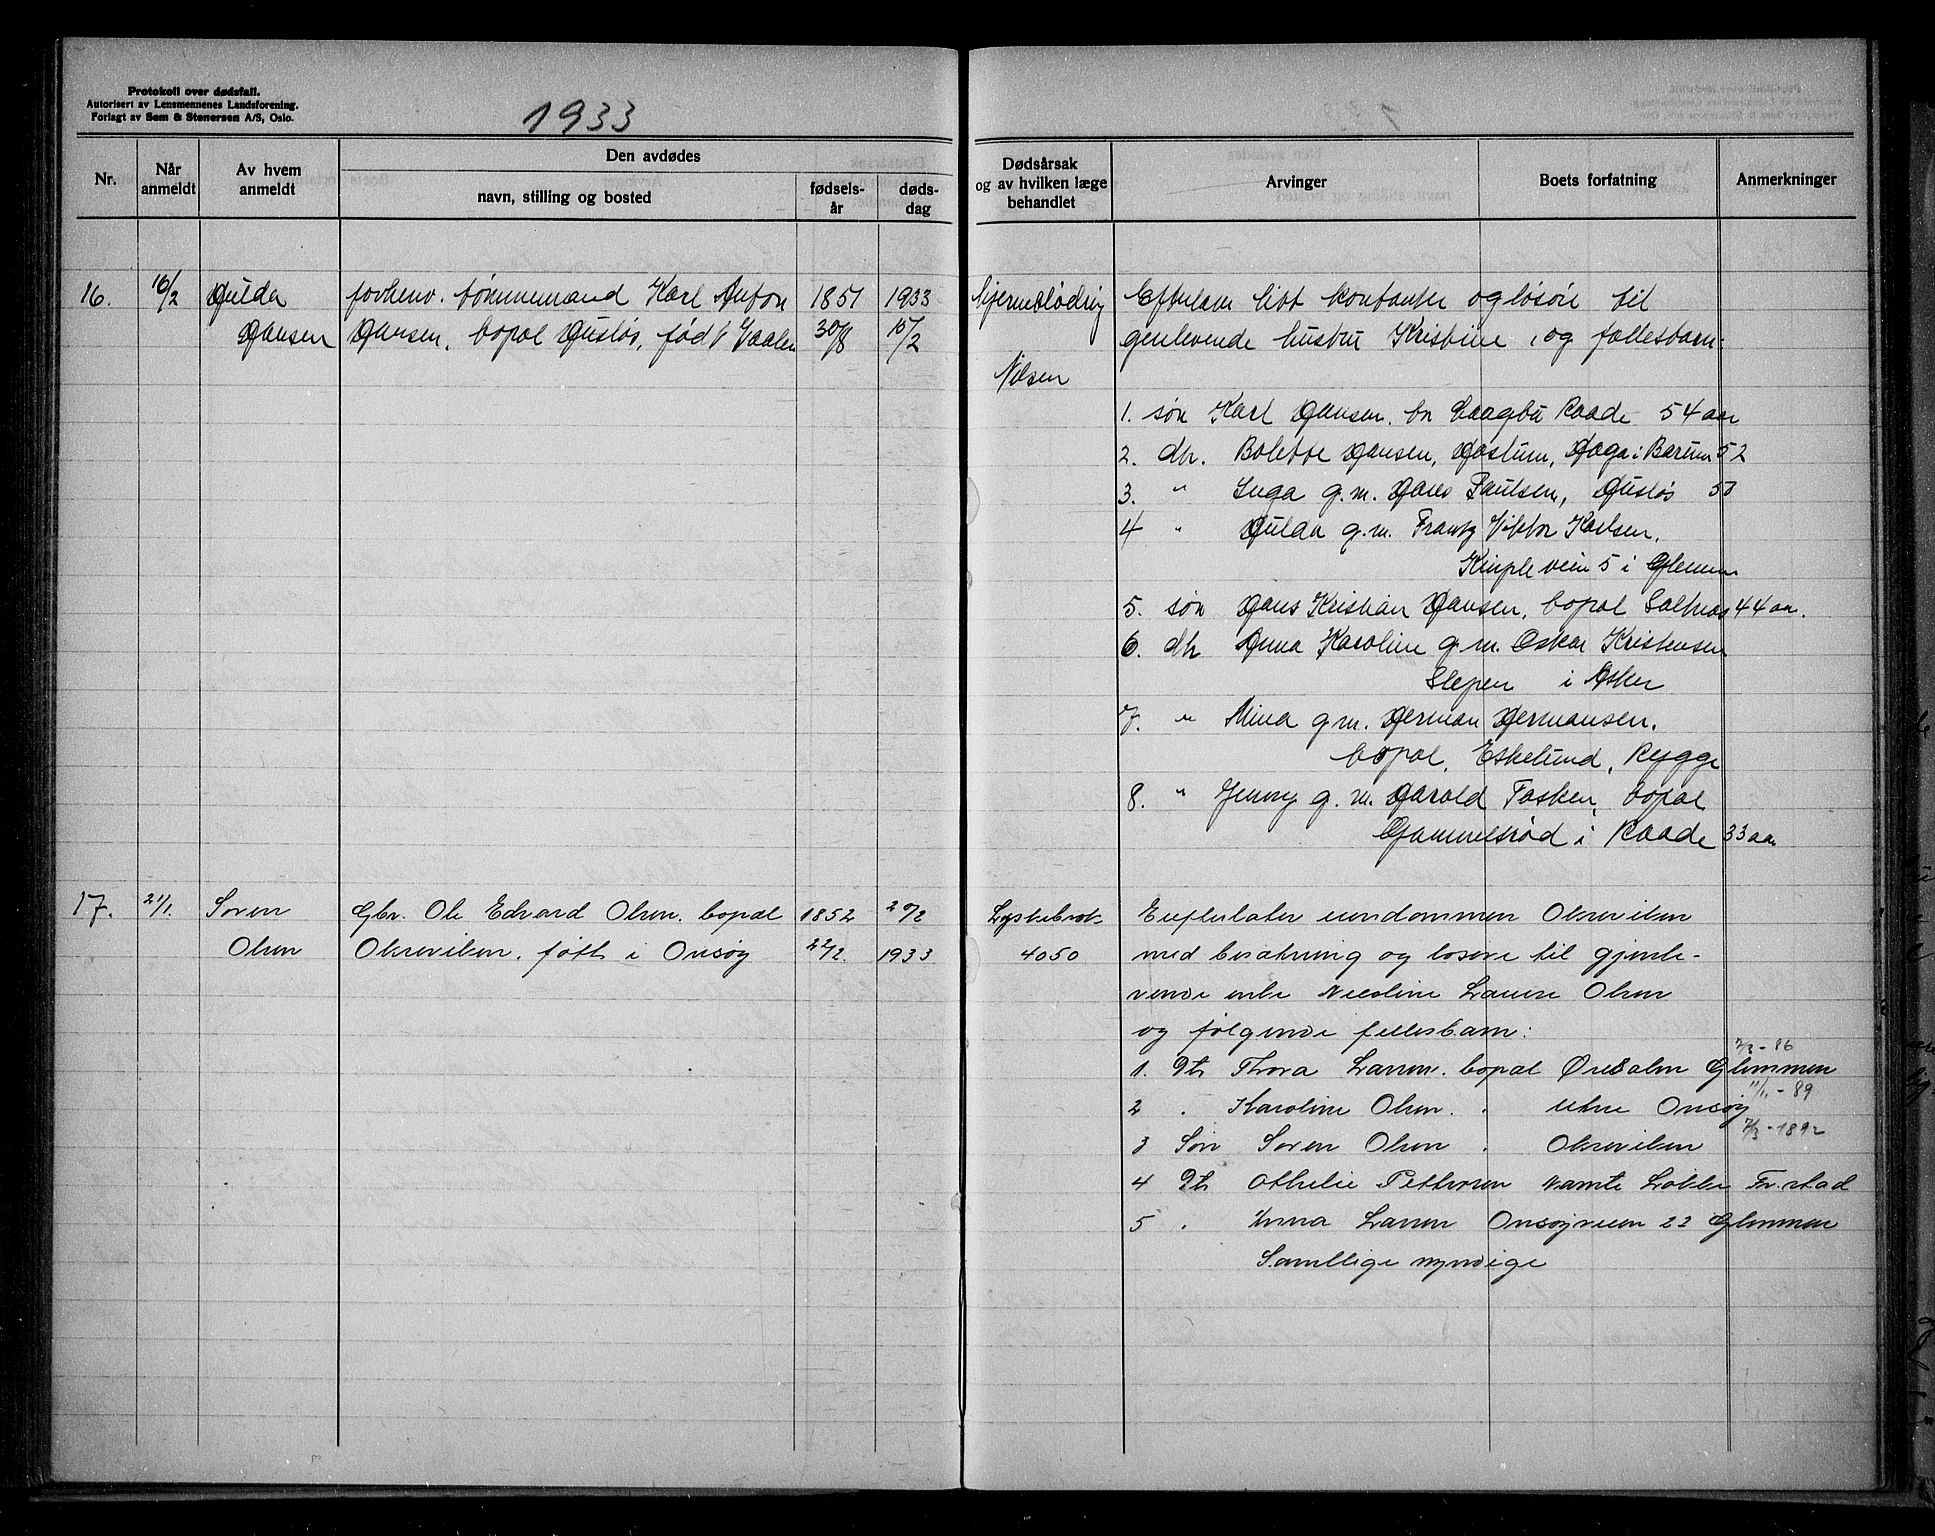 Protokoll over dødsfall.
Autorisert av Lensmennenes Landsforening.
Forlagt av Sem & Stenersen A/S, Oslo.
1933
Nr.
Når anmeldt
Av hvem anmeldt
Den avdødes
navn, stilling og bosted
fødsels-år
døds-dag
Dødsårsak
og av hvilken læge
behandlet
Arvinger
Boets forfatning
Anmerkninger
16. 16/2 Hulda forhenv. tømmemand Karl Anton 1851 1933
Hansen Hansen, bopal Husløs, fød i Vaaler 30/8 15/2
Hjerneblødnig
Nilsen
Efterlem litt kontanter og løsøre til
genlevende hustru Kristine, og fællesbarn:
1. søn Karl Hansen. bn Haagbu Raade 54 aar
2. dtr. Bolette Hansen, Høstum, Haga i Bærum 52
3. " Inga g.m. Hans Paulsen, Husløs 50
4 " Hulda g.m. Frantz Viktor Karlsen.
Kirple veien 5 i Glemm
5. søn Hans Kristian Hansen, bopal Saltnes 44 aar.
6. dtr Anna Karoline g.m. Oskar Kristensen
Slepen i Asker
7. " Mina g.m. Herman Hermansen.
bopal, Eskelund, Rygge
8. " Jenny g.m. Harald Tasken, bopal
Gammelsrød i Raade 33 aar
17. 21/1. Søren Gbr. Ole Edvard Olsen. bopal 1852 20/2
Olsen Okseviken. født i Onsøy 22/2. 1933
Lyskebrok
4050
Enpterlater eiendommen Okseviken
med besætning og løsøre til gjenle-
vende enke Nicoline Laurse Olsen
og følgende fellesbarn:
7/3 - 86
1. Dtr Thora Larsen. bopal Øredalen Glemmen
11/1 - 89
2 . Karoline Olsen. . Utne Onsøy
7/3 - 1892
3 Søn Søren Olsen . Okseviken
4 Dtr Othelie Pettersen Namte Løkke Fr.stad
5 . Anna Larsen Onsøyveien 22 Glemmen
Samtlige myndige